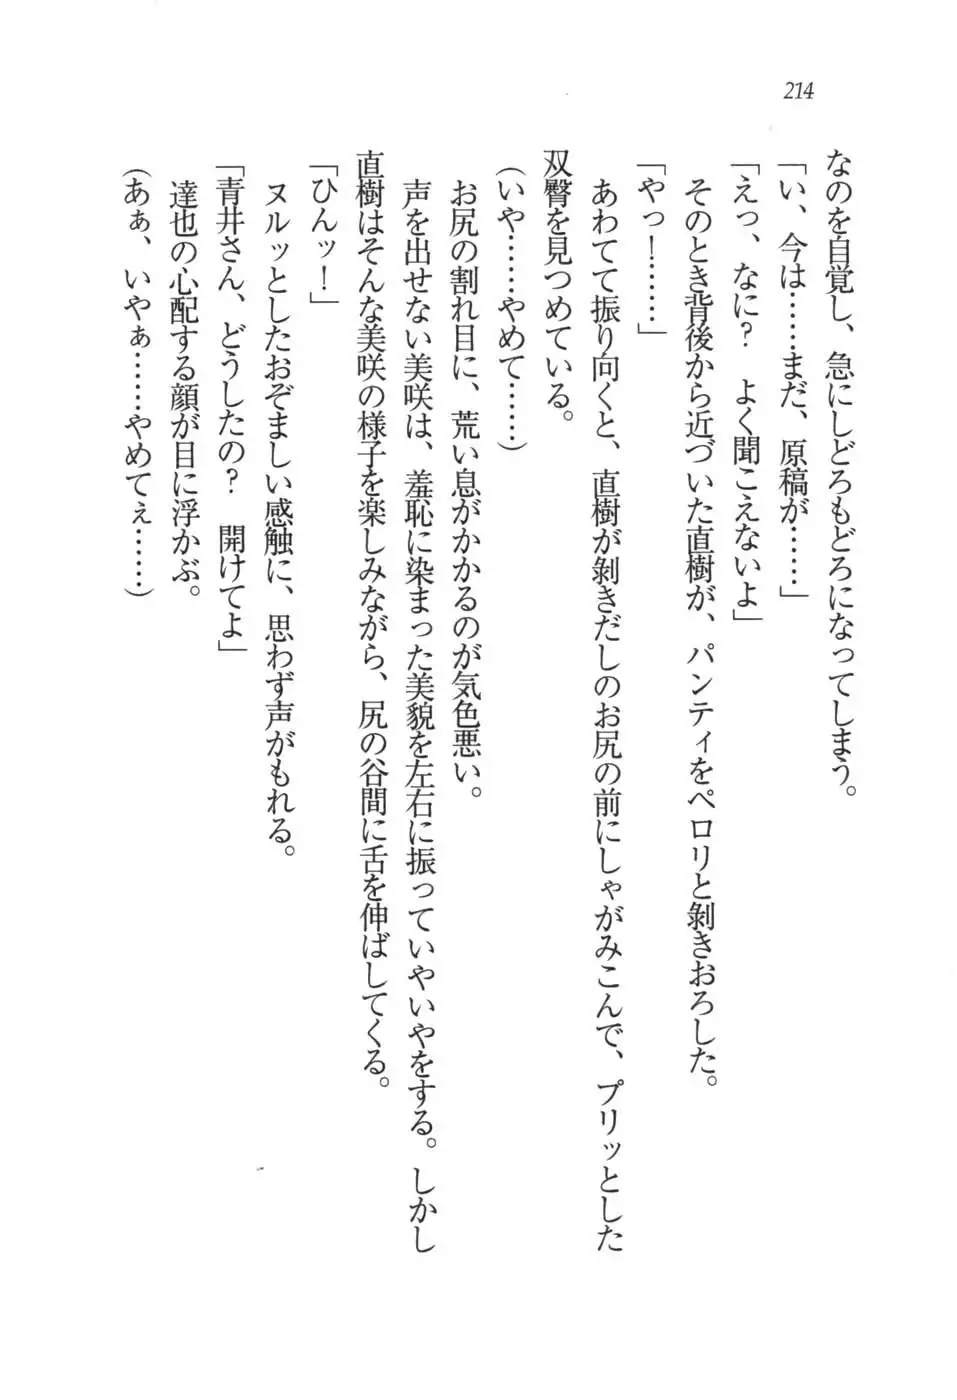 214
なのを自覚し、急にしどろもどろになってしまう。
「い、今は……まだ、原稿が……」
「えっ、なに？　よく聞こえないよ」
そのとき背後から近づいた直樹が、パンティをペロリと剝きおろした。
「やっ！……」
あわてて振り向くと、直樹が剝きだしのお尻の前にしゃがみこんで、プリッとした
双臀を見つめている。
（いや……やめて……）
お尻の割れ目に、荒い息がかかるのが気色悪い。
声を出せない美咲は、羞恥に染まった美貌を左右に振っていやいやをする。しかし
直樹はそんな美咲の様子を楽しみながら、尻の谷間に舌を伸ばしてくる。
「ひんッ！」
ヌルッとしたおぞましい感触に、思わず声がもれる。
「青井さん、どうしたの？　開けてよ」
達也の心配する顔が目に浮かぶ。
（あぁ、いやぁ……やめてぇ……）